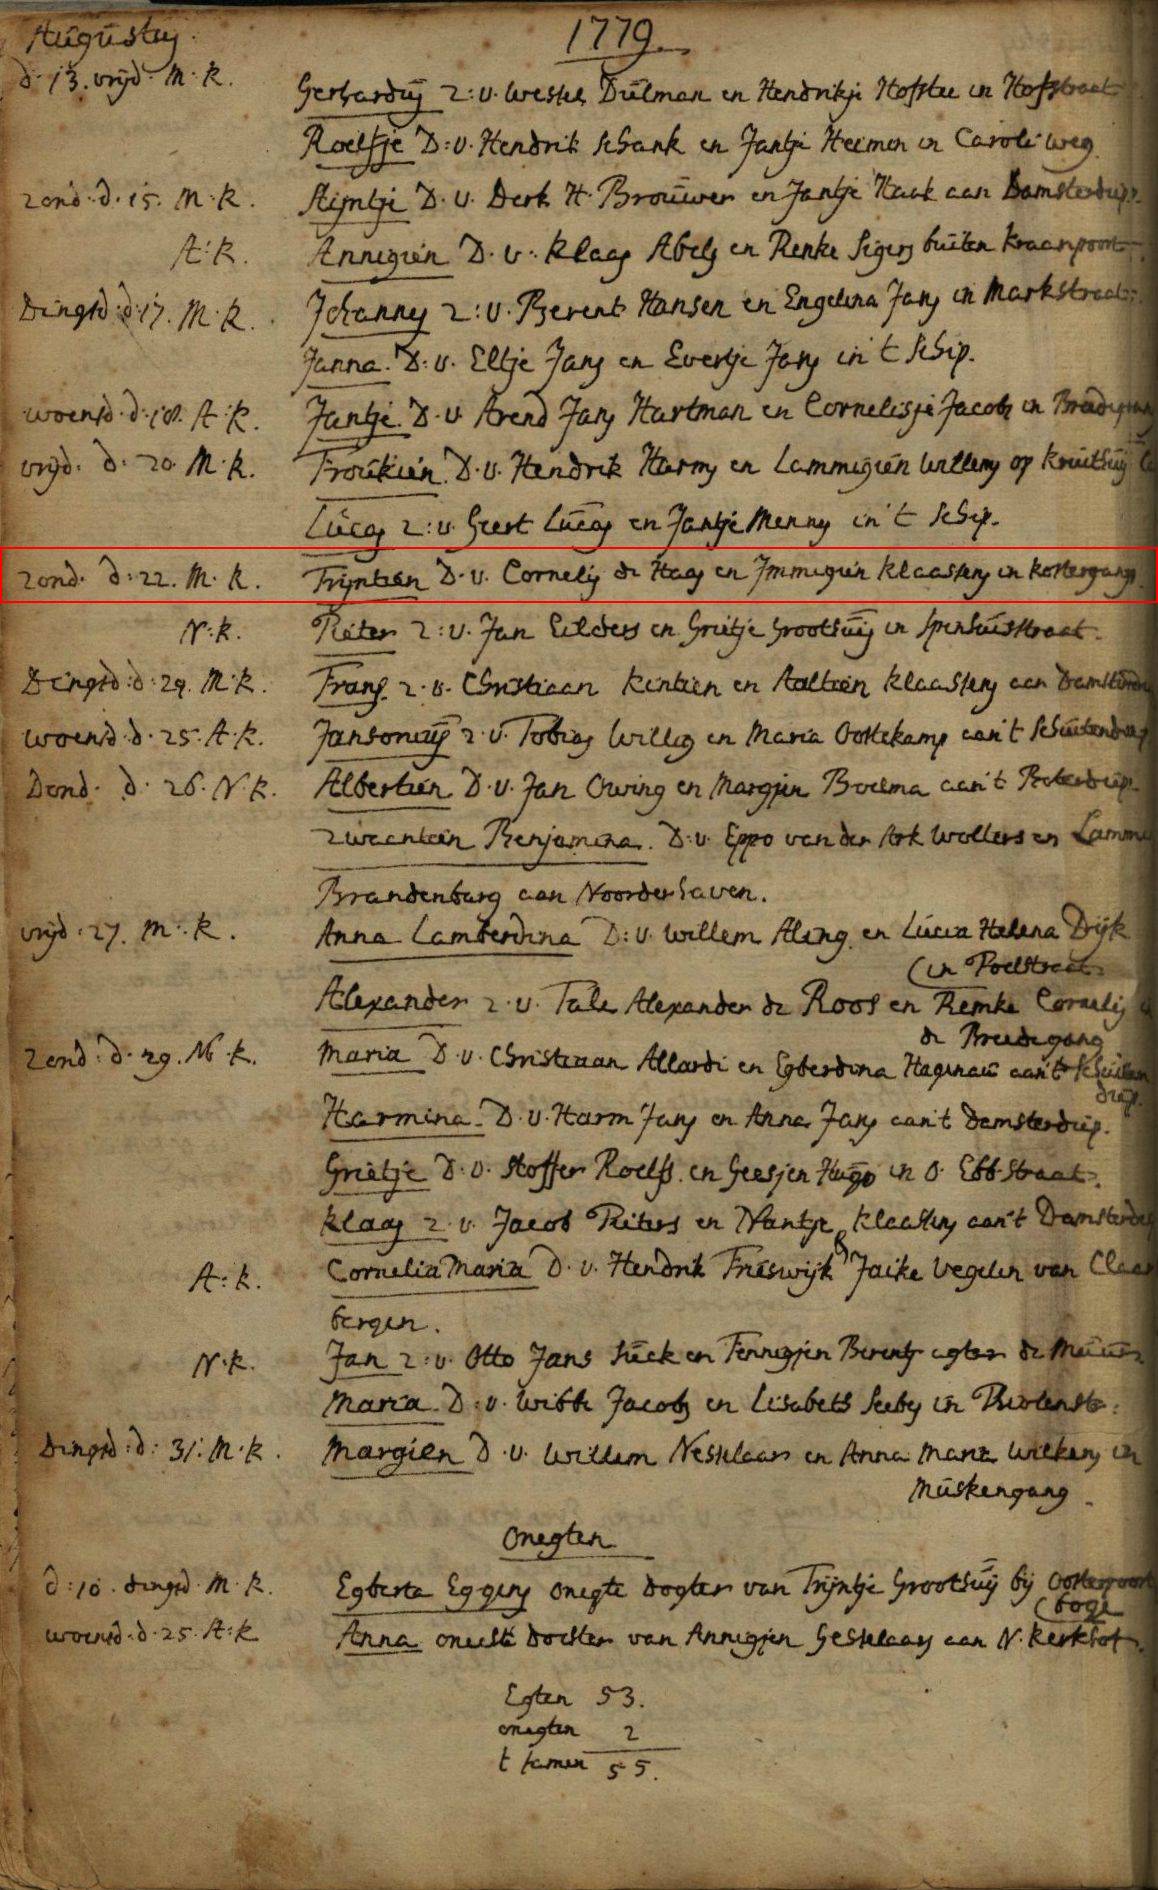 Augusty.
1779
d. 13. vrijd. M. K. Gerhardus Z: v. Wessel Dülman en Hendrikje Hofstee in Hofstraat
Roelfje D: v. Hendrik Schank en Jantje Heimen in Caroli weg.
Zond. d. 15. M. K. Stijntje D. v. Derk H. Brouwer en Jantje Haak aan Damsterdiep.
A: K. Annegien D. v. Klaas Abels en Renke Sigers buiten Kraanpoort
Dingsd. d. 17. M. K. Johannes Z: v. Berent Hansen en Engelina Jans in Markstraat.
Janna. D. v. Eltje Jans en Evertje Jans in 't Schip.
Woensd. d. 18. A. K. Jantje D. v. Arend Jans Hartman en Cornelisje Jacobs in
vrijd. d. 20. M. K. Froukien. D. v. Hendrik Harms en Lammigien Willems op
Lucas Z: v. Geert Lucas en Jantje Menns in 't Schip.
Zond. d. 22. M. K. Trijntien D. v. Cornelis de Haas en Immigien Klaassens in kostergang.
N: K. Pieter Z: v. Jan Eilders en Grietje Groothuis in Spinhuisstraat.
Dingsd. d. 29. M. K. Frans. Z. v. Christiaan Kintien en Aaltien Klaassens aan
Woensd. d. 25. A. K. Jansonius Z. v. Tobias Willig en Maria Oostekamp aan 't Schuitendiep
Dond. d. 26. N. K. Albertien D. v. Jan Owing en Margjen Boelma aan 't
Zwaantien Benjamina. D. v. Eppo van der Ark Wolters en
Brandenburg aan Noorderhaven.
vrijd. 27. M. K. Anna Lamberdina D: v. Willem Aling en Lucia Helena Dijk
(in Poelstraat.
Alexander Z. v. Tale Alexander de Roos en Remke Cornelis
de Breedegang
Zond. d. 29. M. K. Maria D. v. Christiaan Allardi en Egberdina Hagenau aan 't Schuiten
diep.
Harmina. D. v. Harm Jans en Anna Jans aan 't Damsterdiep.
Grietje D. v. Stoffer Roelfs. en Geesjen Hugo in O. Ebb. Straat.
Klaas Z. v. Jacob Pieters en Nantje Klaassens aan 't
A: K. Cornelia Maria D. v. Hendrik Frieswijk & Jaike Vegelin van Claer
bergen.
N. K. Jan Z: v. Otto Jans Suck en Fennegjen Berents agter de Muur
Maria. D. v. Wibbe Jacobs en Lisabeth Seebes in
Dingsd. d. 31. M. K. Margien D. v. Willem Nesselaar en Anna Maria Wilkens in
Muskengang.
Onegten
d: 10. dingsd. M. K. Egberta Eggens onegte dogter van Trijntje Groothuis bij Oosterpoort
(boge
Woensd. d. 25. A: K Anna onechte dochter van Annegjen Gesselaars aan N. Kerkhof.
Egten 53.
onegten 2
t samen 55.